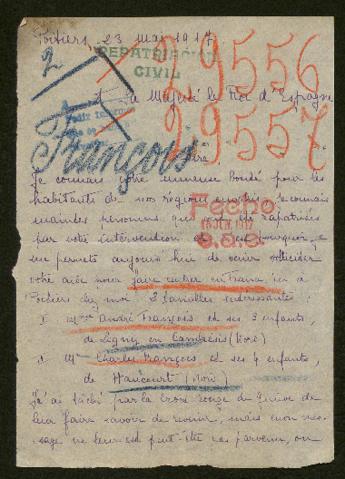 Poitiers, 23 Mai 1917
REPATRIACION
CIVIL
2
29556
29557
A sa Majesté le Roi d'Espagne
François
Sire
Je connais votre immense Bonté pour les
habitants de nos régions envahies, je connais
maintes personnes qui ont été rapatriées
par votre intervention et c'est pourquoi je
me permets aujourd'hui de venir solliciter
votre aide pour faire rentrer en France, ici à
Poitiers chez moi 2 familles intéressantes
Fecho
15 JUN. 1917
1° Mme André François et ses 3 enfants,
de Ligny en Cambrésis (Nord)
2° Me Charles François et ses 4 enfants,
de Haucourt (Nord)
J'ai tâché par la Croix rouge de Genève de
leur faire savoir de revenir, mais mon mes-
sage ne leur est peut-être pas parvenu, ou